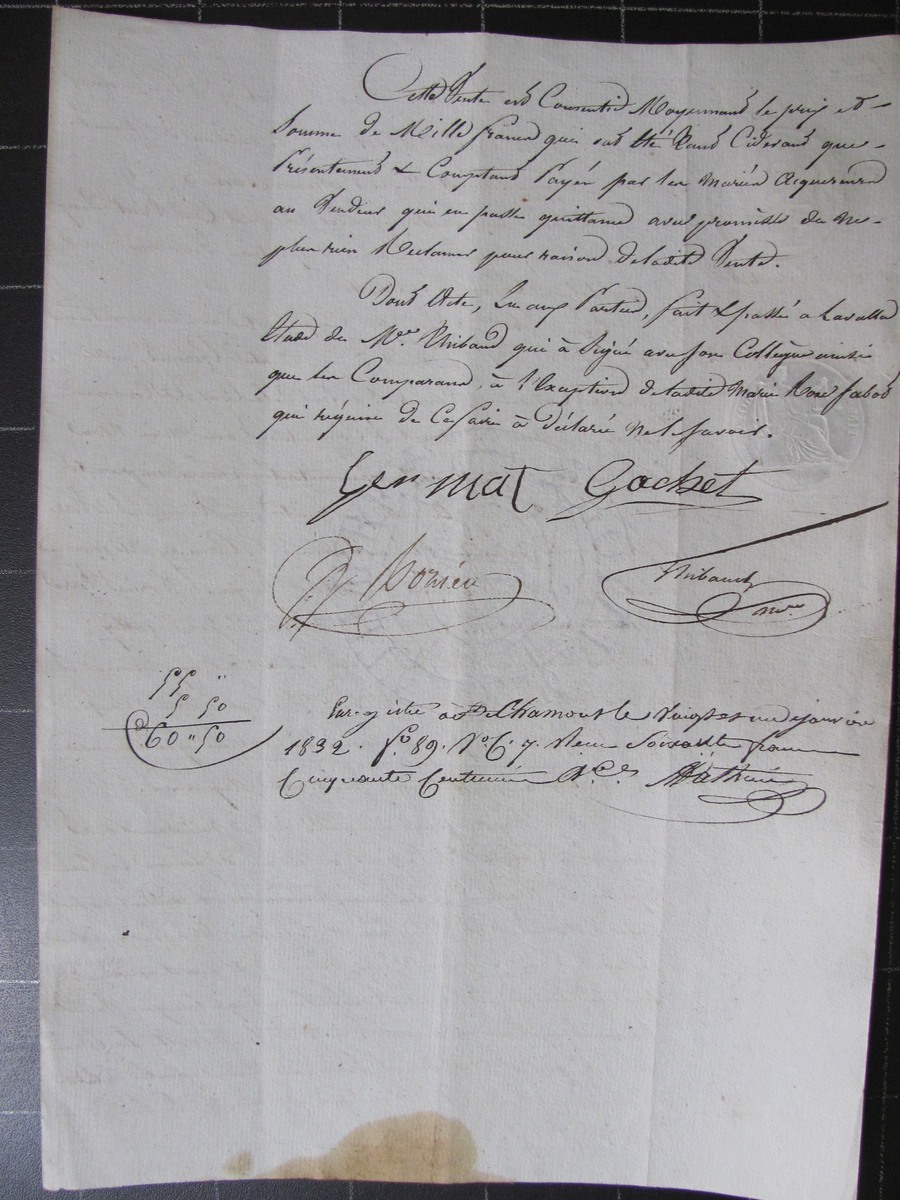 Cette Vente est Consentie Moyennant le prix et
Somme de Mille francs qui ont été
Présentement & Comptant Payée par les Mariés Acquéreurs
au Vendeur qui en passe quittance avec promesse de ne
plus rien Réclamer pour raison de ladite Vente.
Dont Acte, Lu aux Parties, fait & passé a Lavalla
Etude de Me. Thibaud qui à Signé avec son Collègue ainsi
que les Comparans, à l'Exception de ladite Marie
qui requise de Ce faire à déclaré Ne le savoir.
Germat Gachet
Thibaud nre
55 "
5 50
60 " 50
Enregistré a St Chamond le Vingt et un janvier
1832. fo. 89. Vo. C. 7. Reçu Soixante francs
Cinquante Centimes